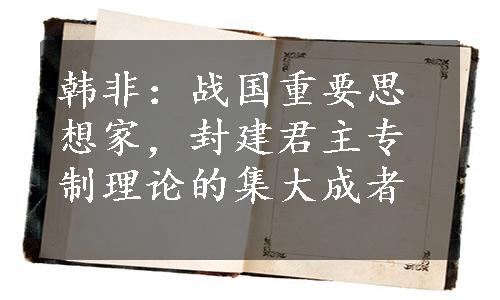 韩非：战国重要思
想家，封建君主专
制理论的集大成者